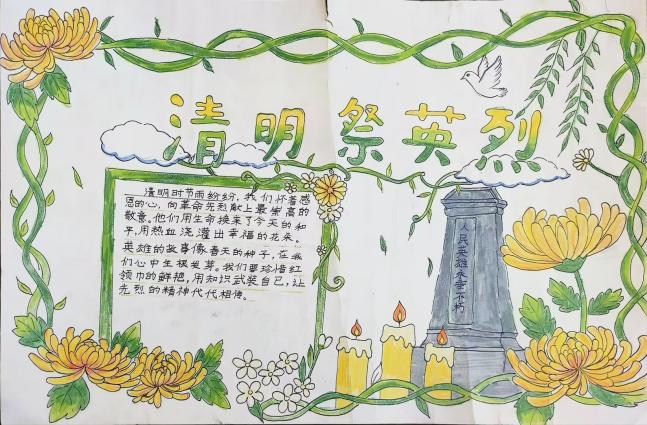 清明祭英烈
清明时节雨纷纷，我们怀着感
恩的心，向革命先烈献上最崇高的
敬意。他们用生命换来了今天的和
平，用热血浇灌出幸福的花朵。
英雄的故事像春天的种子，在我
们心中生根发芽。我们要珍惜红
领巾的鲜艳，用知识武装自己，让
先烈的精神代代相传。
人民英雄永垂不朽